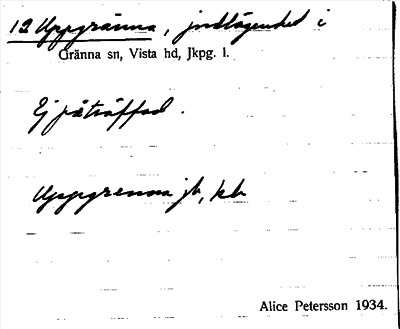 12 Uppgränna, jordlägenhet i
Gränna sn, Vista hd, Jkpg. l.
Ej påträffad.
Uppgrenna jb, kb
Alice Petersson 1934.